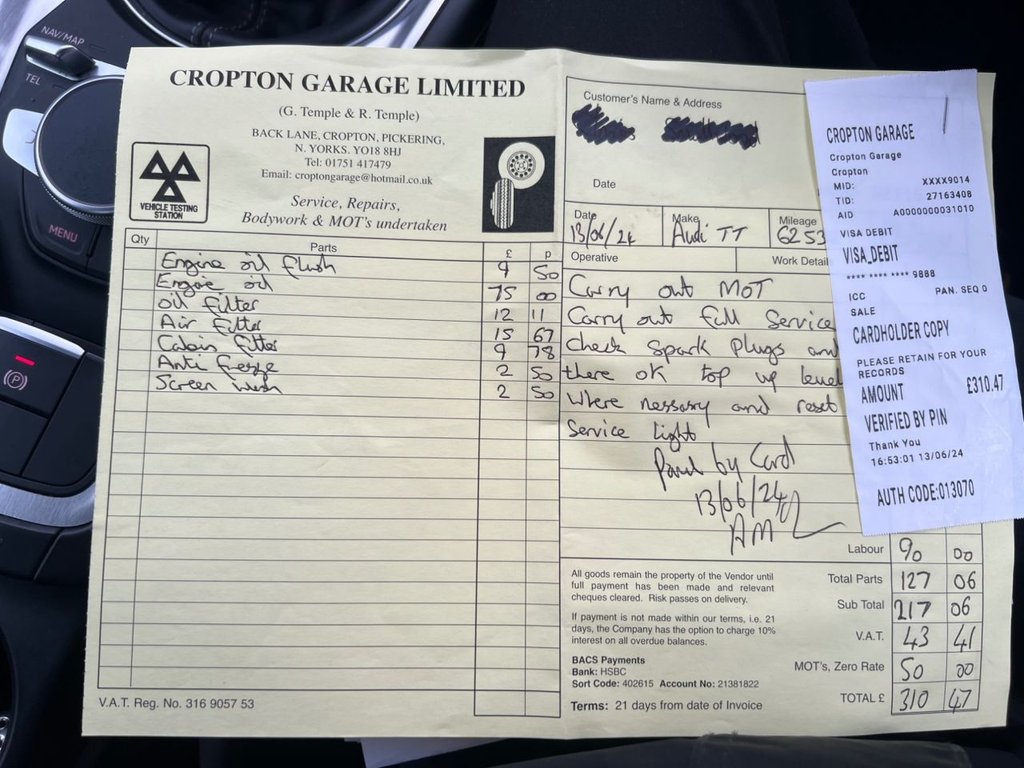 NAV/MAP
TEL
MENU
CROPTON GARAGE LIMITED
(G. Temple & R. Temple)
BACK LANE, CROPTON, PICKERING,
N. YORKS. YO18 8HJ
Tel: 01751 417479
Email: croptongarage@hotmail.co.uk
Service, Repairs,
Bodywork & MOT's undertaken
VEHICLE TESTING
STATION
Qty Parts £ p
Engine oil flush 9 50
Engine oil 75 00
oil filter 12 11
Air filter 15 67
Cabin filter 9 78
Anti freeze 2 50
Screen wash 2 50
V.A.T. Reg. No. 316 9057 53
Customer's Name & Address
Date
Date Make Mileage
13/06/24 Audi TT 6253
Operative Work Detail
Carry out MOT
Carry out full Service
Check Spark plugs and
there ok top up level
where nessary and reset
Service light
Paid by Card
13/06/24
AM
All goods remain the property of the Vendor until
full payment has been made and relevant
cheques cleared. Risk passes on delivery.
If payment is not made within our terms, i.e. 21
days, the Company has the option to charge 10%
interest on all overdue balances.
BACS Payments
Bank: HSBC
Sort Code: 402615 Account No: 21381822
Terms: 21 days from date of Invoice
Labour 90 00
Total Parts 127 06
Sub Total 217 06
V.A.T. 43 41
MOT's, Zero Rate 50 00
TOTAL £ 310 47
CROPTON GARAGE
Cropton Garage
Cropton
MID: XXXX9014
TID: 27163408
AID A0000000031010
VISA DEBIT
VISA_DEBIT
**** **** **** 9888
ICC PAN. SEQ 0
SALE
CARDHOLDER COPY
PLEASE RETAIN FOR YOUR
RECORDS
AMOUNT £310.47
VERIFIED BY PIN
Thank You
16:53:01 13/06/24
AUTH CODE:013070